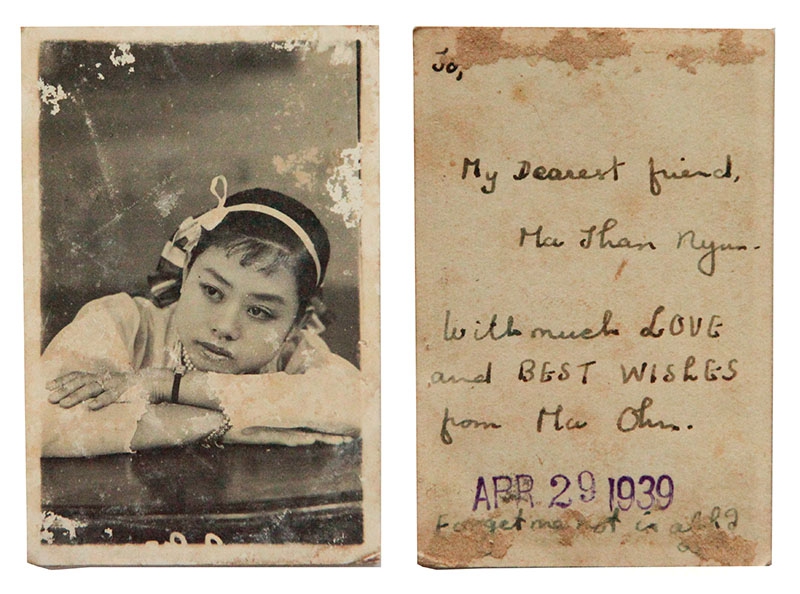 To,
My Dearest friend,
Ma Than Nyun.
With much LOVE
and BEST WISHES
from Ma Ohn.
APR 29 1939
Forget me not in